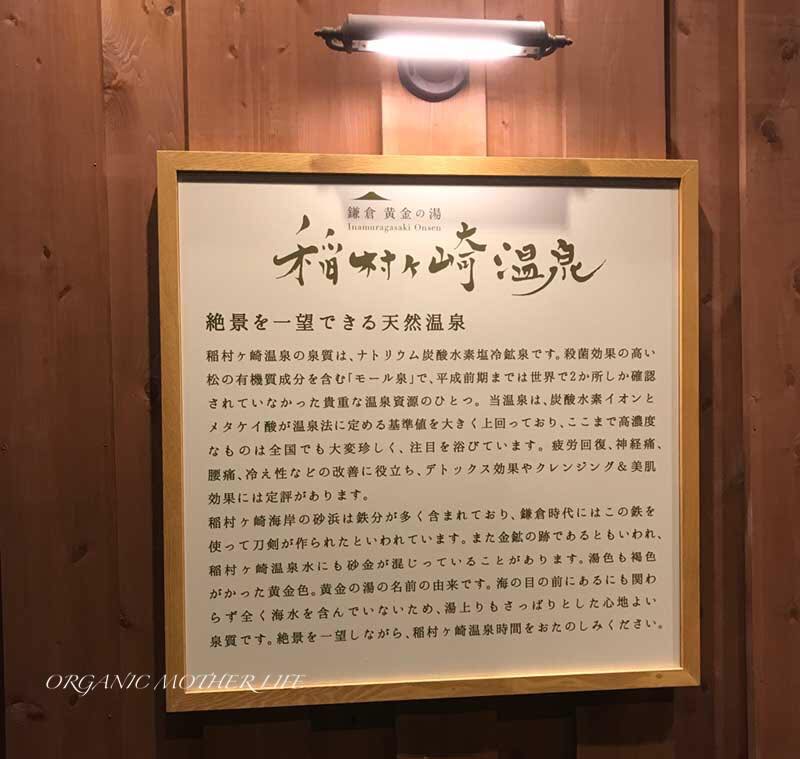 鎌倉 黄金の湯
Inamuragasaki Onsen
稲村ヶ崎温泉
絶景を一望できる天然温泉
稲村ヶ崎温泉の泉質は、ナトリウム炭酸水素塩冷鉱泉です。殺菌効果の高い
松の有機質成分を含む「モール泉」で、平成前期までは世界で2か所しか確認
されていなかった貴重な温泉資源のひとつ。当温泉は、炭酸水素イオンと
メタケイ酸が温泉法に定める基準値を大きく上回っており、ここまで高濃度
なものは全国でも大変珍しく、注目を浴びています。疲労回復、神経痛、
腰痛、冷え性などの改善に役立ち、デトックス効果やクレンジング&美肌
効果には定評があります。
稲村ヶ崎海岸の砂浜は鉄分が多く含まれており、鎌倉時代にはこの鉄を
使って刀剣が作られたといわれています。また金鉱の跡であるともいわれ、
稲村ヶ崎温泉水にも砂金が混じっていることがあります。湯色も褐色
がかった黄金色。黄金の湯の名前の由来です。海の目の前にあるにも関わ
らず全く海水を含んでいないため、湯上りもさっぱりとした心地よい
泉質です。絶景を一望しながら、稲村ヶ崎温泉時間をおたのしみください。
ORGANIC MOTHER LIFE